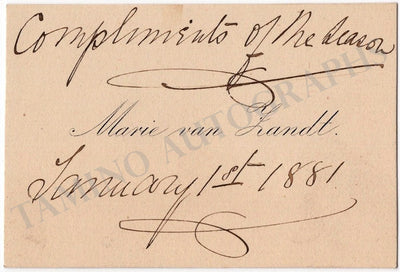 Compliments of the Season
Marie van Zandt.
January 1st 1881
TAMINO AUTOGRAPHS